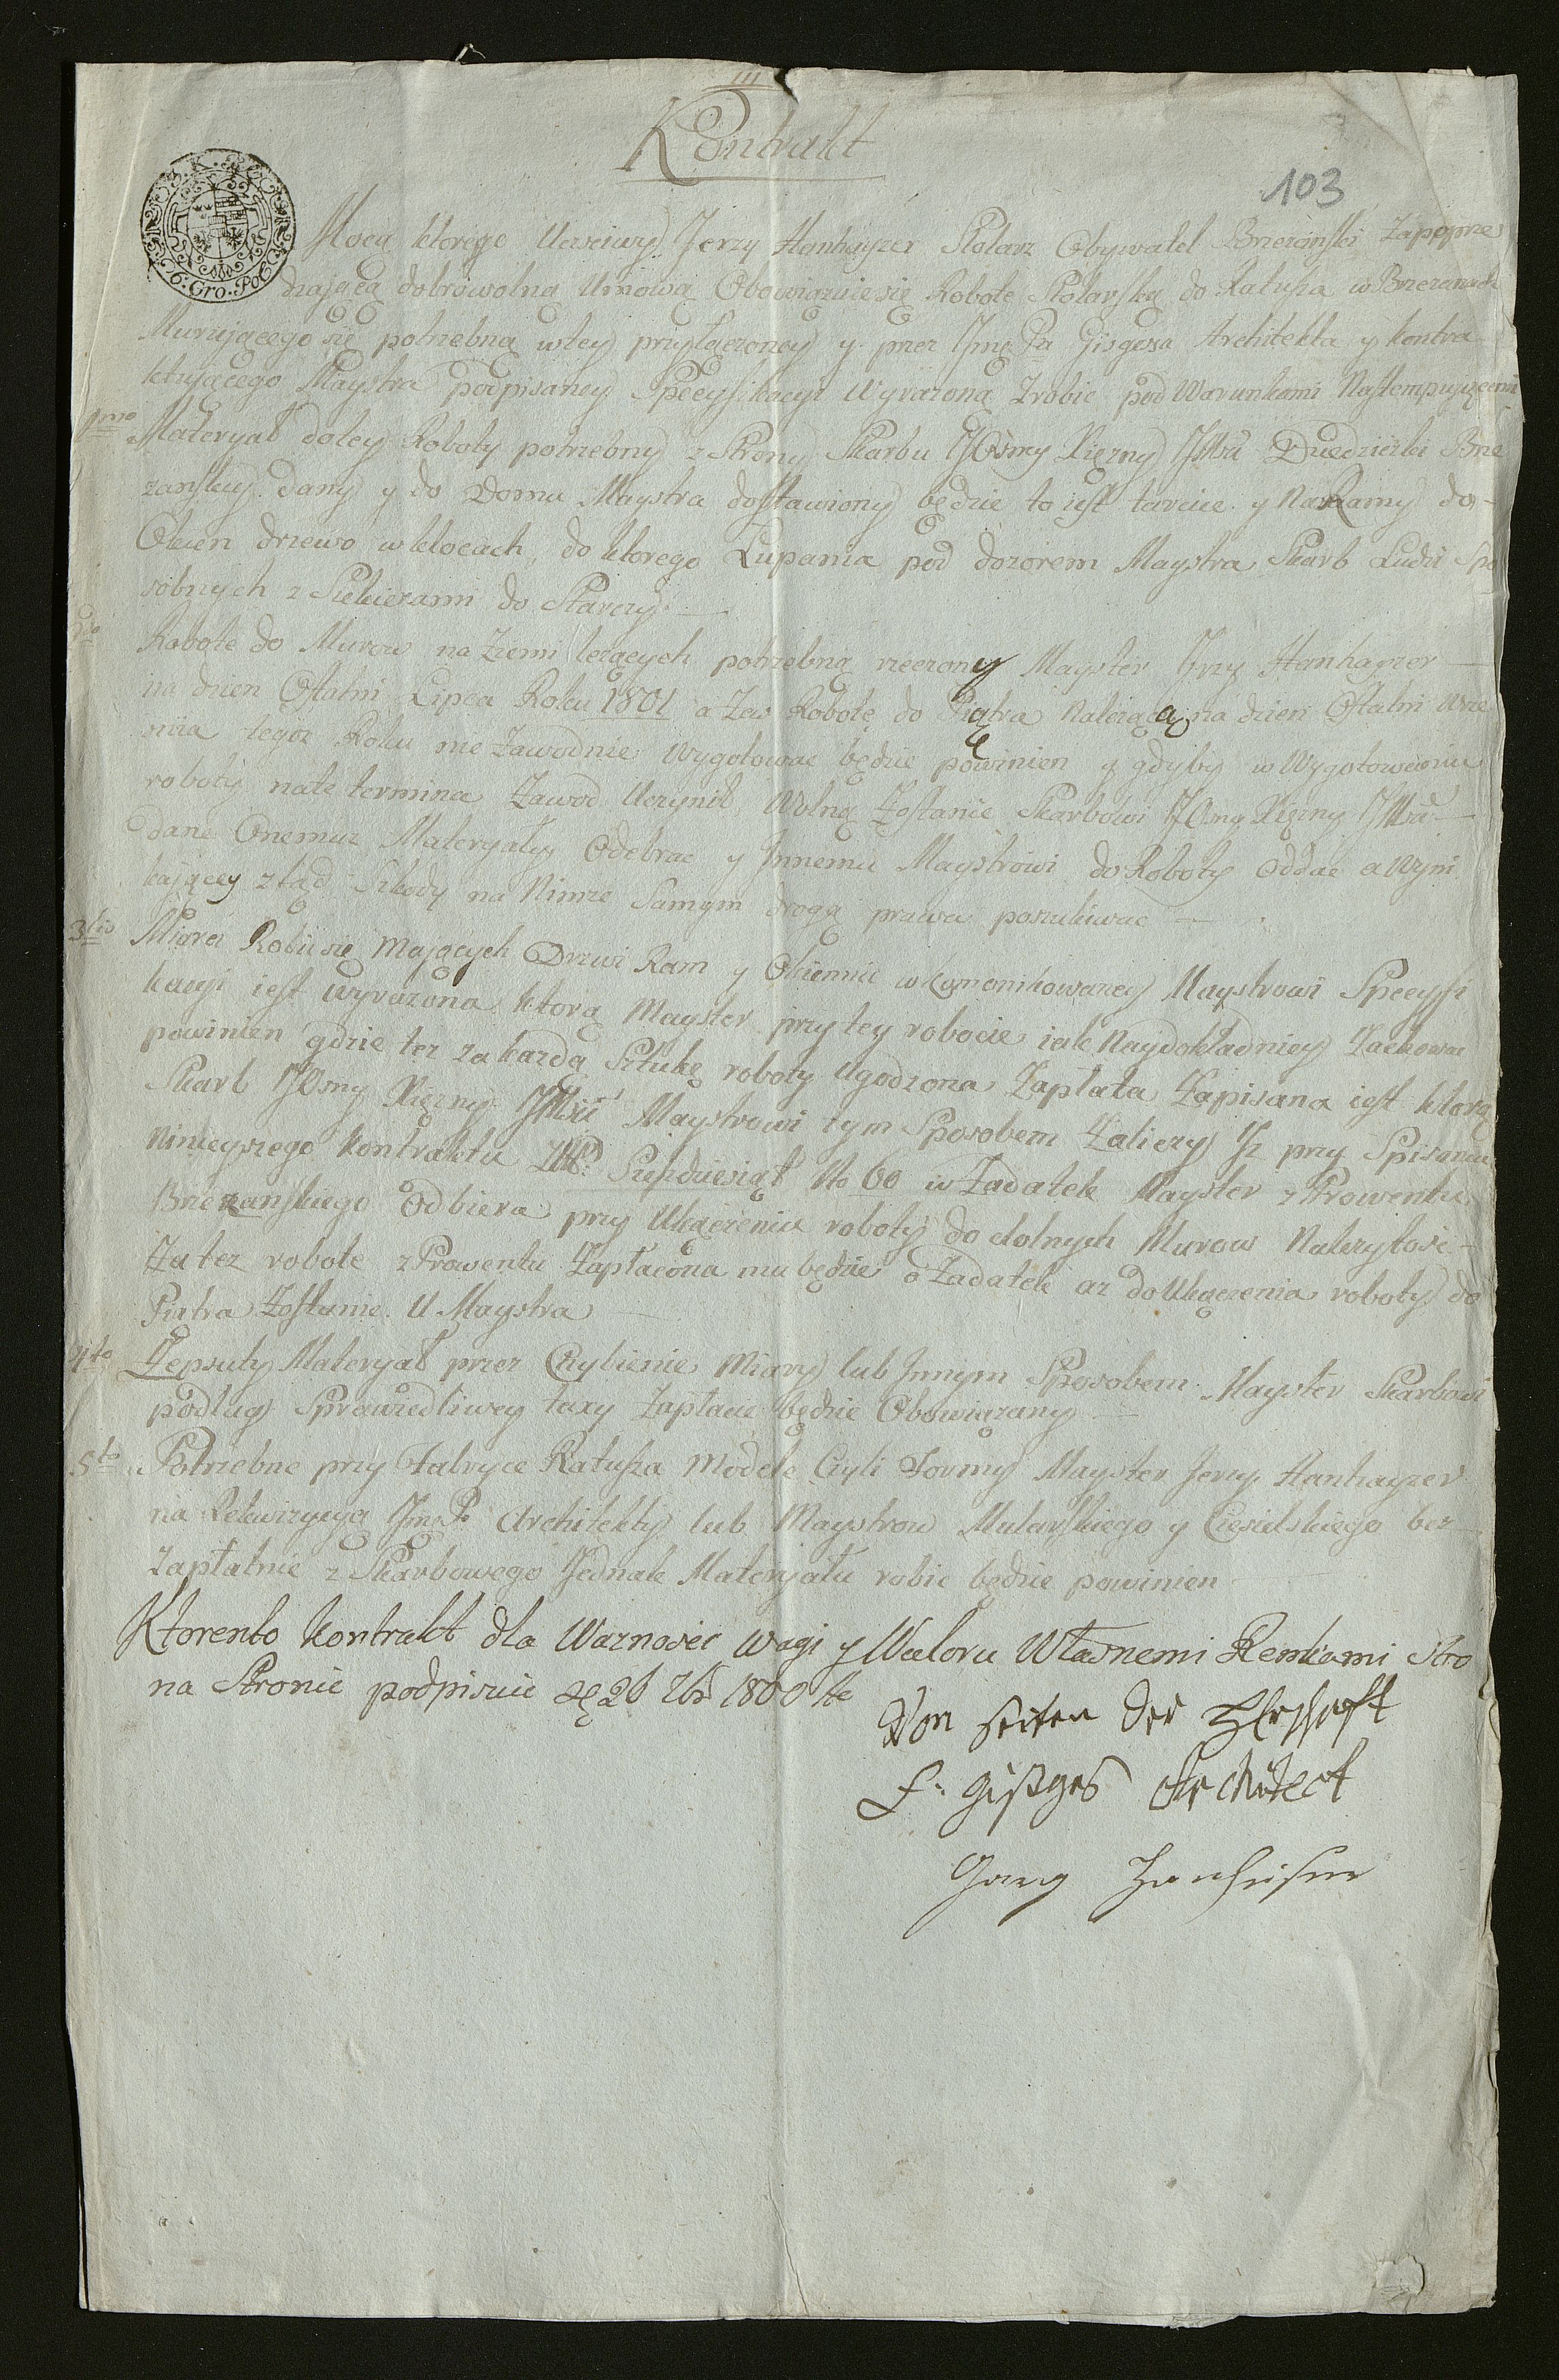 III
Kontrakt
103
6. Gro. Pol.
Mocą ktorego Uczciwy Jerzy Hanhayzer Stolarz Obywatel Brzezanski Zapoprze
dzaiącą dobrowolną Umową Obowiązuie się Robote Stolarską do Ratusza w Brzezanach
Muruiącego się potrzebną w tey przyłączoney y przez Jmć Pa Gisgesa Architekta y kontra
ktuiącego Maystra podpisaney Specyfikacyi Wyrażoną Zrobic pod Warunkami Nastempuiącemi
1mo Materyał do tey Roboty potrzebny z Strony Skarbu JOśmy Xiężny JMći Dziedziczki Brze
zanskiey dany y do Domu Maystra dostawiony będzie to iest tarcice y Na Ramy do
Okien drzewo w klocach, do ktorego Łupania pod dozorem Maystra Skarb Ludzi Spo
sobnych z Siekierami do Starczy
2do Robote do Murow na Ziemi leżących potrzebną rzeczony Mayster Jerzy Hanhayzer
na dzien Ostatni Lipca Roku 1801 a Zas Robotę do Piątra Należącą na dzien Ostatni Wrze
snia tegoż Roku nie Zawodnie Wygotowac będzie powinien y gdyby w Wygotowaniu
roboty na te termina Zawod Uczynił, Wolną Zostanie Skarbowi JOmy Xiężny JMći
dane Onemuz Materyały Odebrac y Innemu Maystrowi do Roboty oddac a Wyni
kaiącey z tąd Szkody na Nimze Samym drogą prawa poszukiwac
3tio Miara Robii się Maiących Drzwi Ram y Okiennic w komonikowaney Maystrowi Specyfi
kacyi iest wyrażona ktorą Mayster przy tey robocie iak Naydokładniey Zachowac
powinien gdzie tez za kazdą Sztukę roboty Ugodzona Zapłata Zapisana iest ktorą
Skarb JOśmy Xiężny JMći Maystrowi tym Sposobem Zaliczy Jż przy Spisaniu
Ninieyszego Kontraktu Szesdziesiąt No 60 w Zadatek Mayster z Prowentu
Brzezanskiego Odbiera przy Ukączeniu roboty do dolnych Murow Nalezytosc
Za tez robote z Prowentu Zapłacona mu będzie a Zadatek az do Ukączenia roboty do
Piątra Zostanie U Maystra
4to Zepsuty Materyał przez Chybienie Miary lub Innym Sposobem Mayster Skarbowi
podług Sprawiedliwey taxy Zapłacic będzie Obowiązany
5to Potrzebne przy Fabryce Ratusza Modele Czyli Formy Mayster Jerzy Hanhayzer
na Rekwizycyą Jmć Pa Architekty lub Maystrow Mularskiego y Ciesielskiego bez
zapłatnie z Skarbowego Jednak Materyału robic będzie powinien
Ktorento Kontrakt dla Waznosci Wagi y Waloru Własnemi Renkami Stro
na Stronie podpisuie się 26 1800
Von seiten der Hrschaft
F. Gisges Architect
Georg Hanheiser